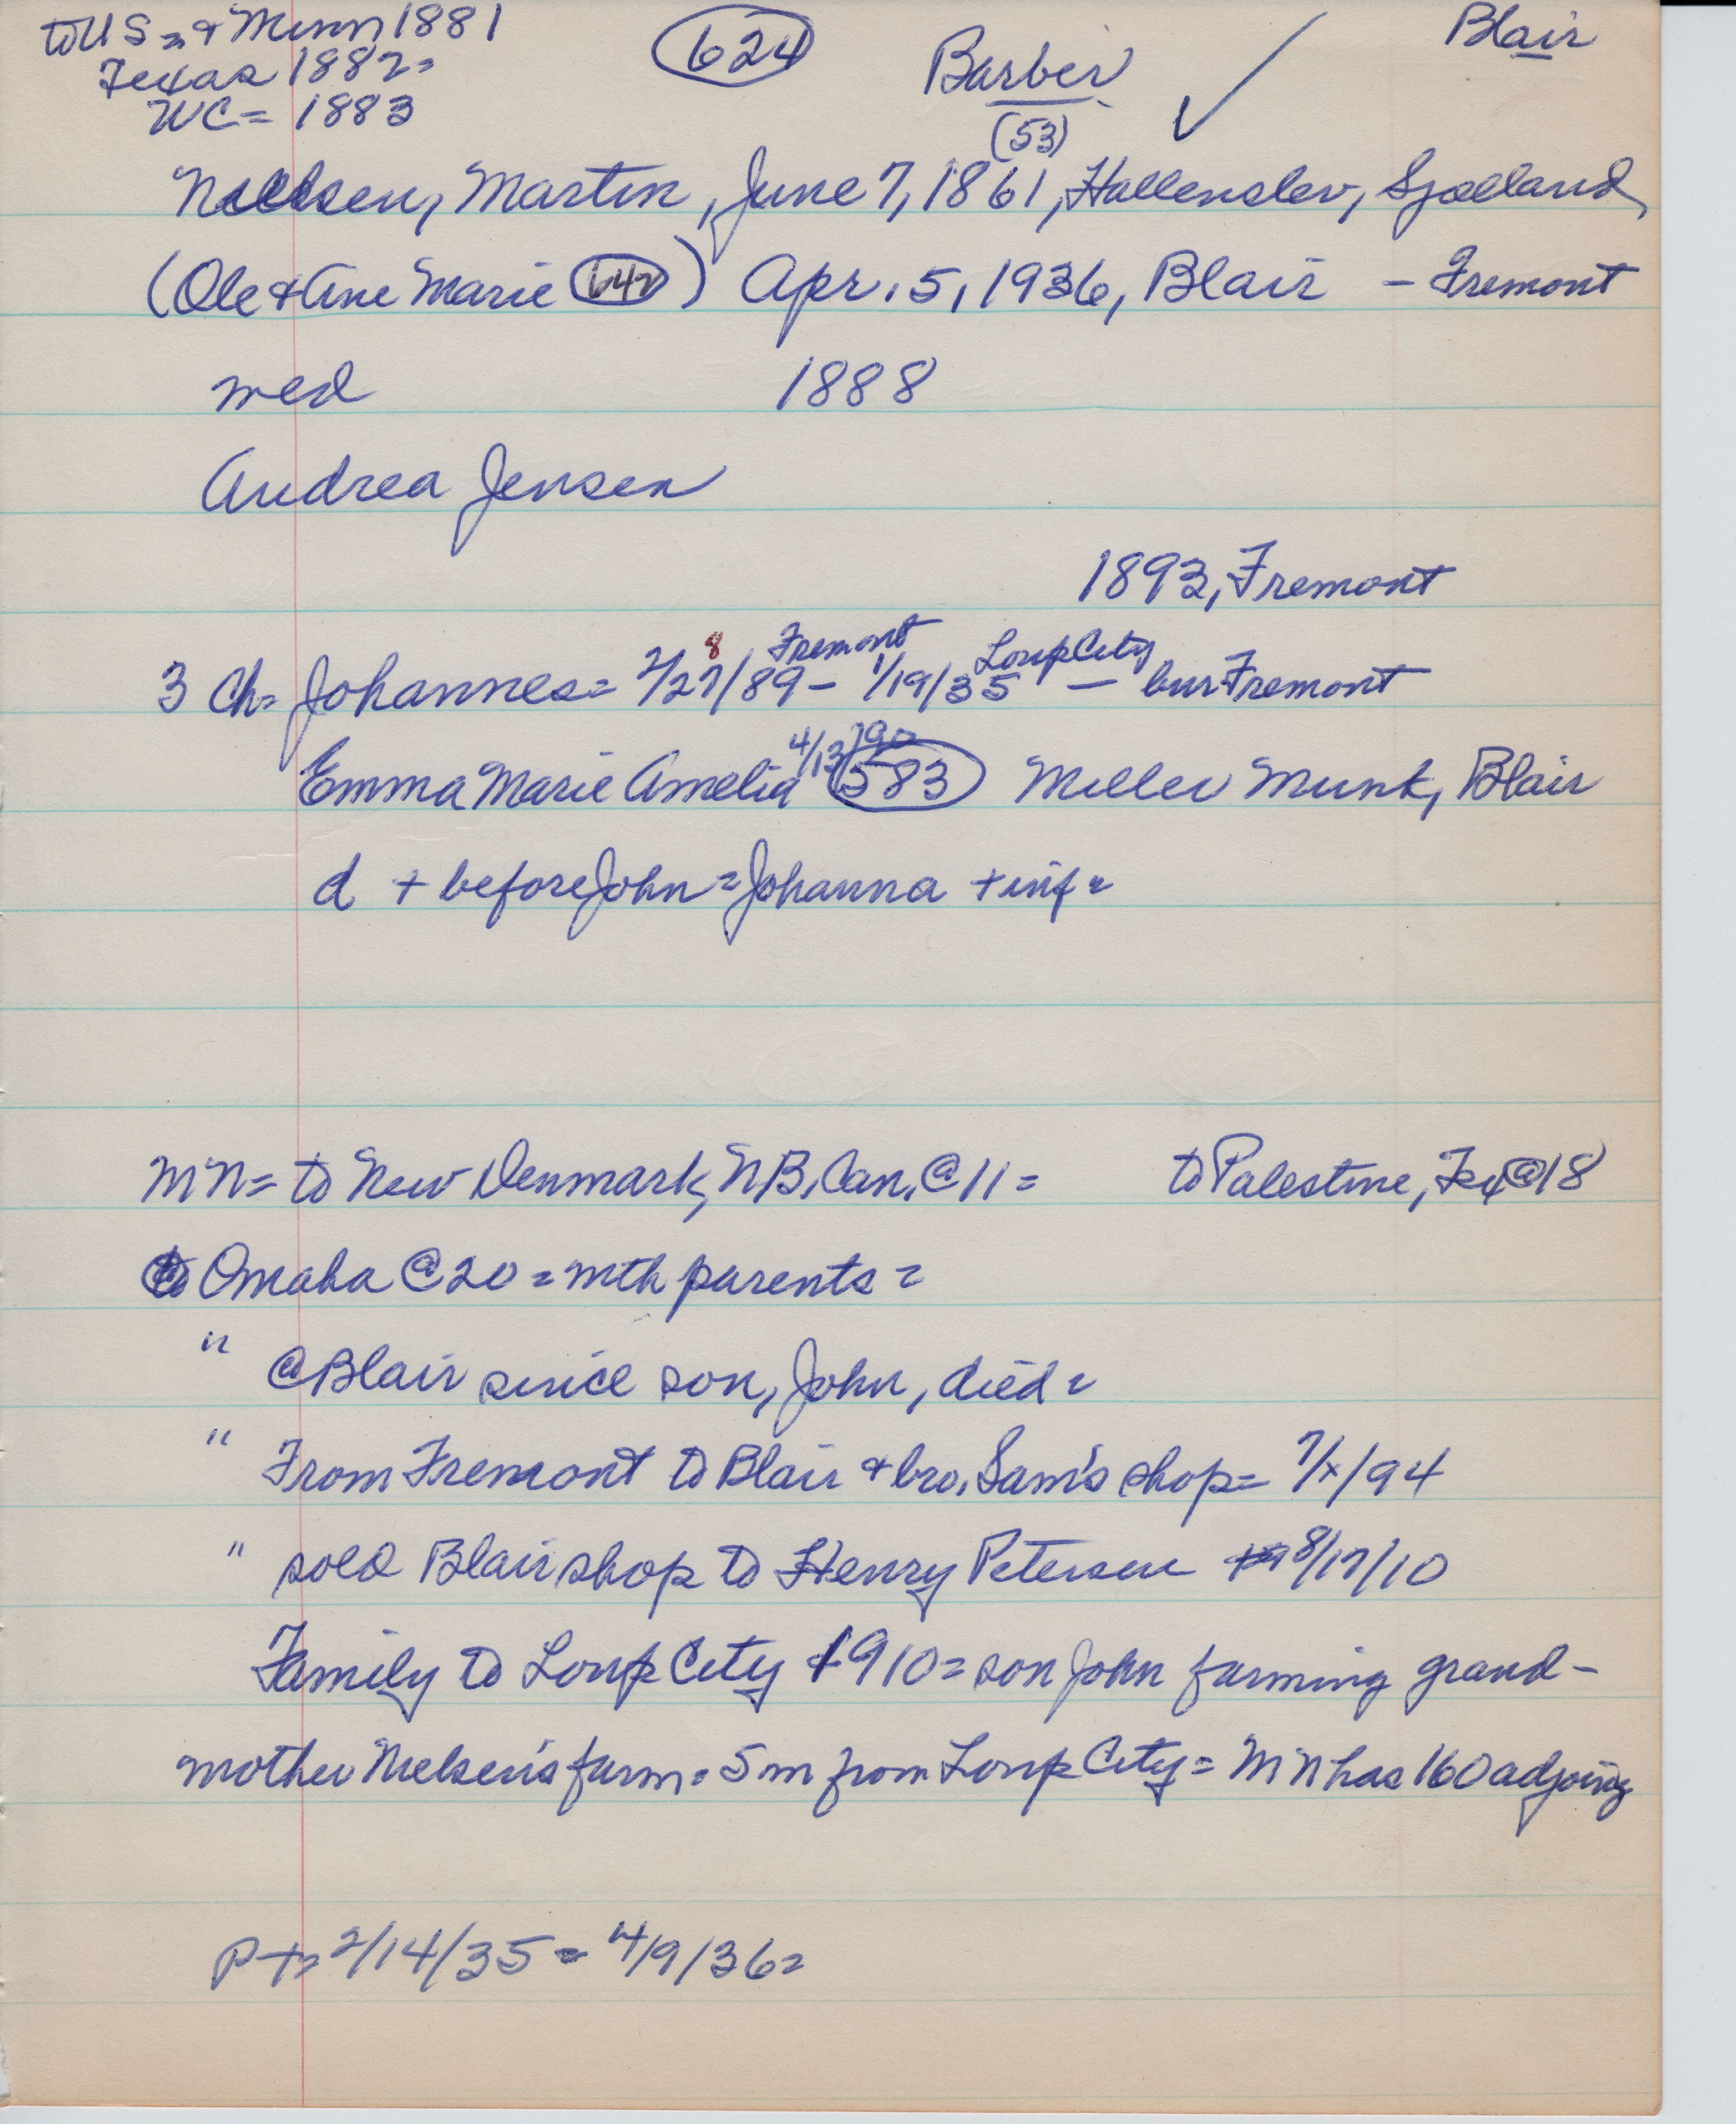 to US = + Minn 1881
Texas 1882 =
WC = 1883
624
Barber
(53)
Blair
Nielsen, Martin, June 7, 1861, Hallenslev, Sjælland,
(Ole + Ane Marie 642) Apr. 5, 1936, Blair - Fremont
wed 1888
Andrea Jensen
1893, Fremont
8 Fremont Loup City
3 Ch = Johannes = 2/27/89 - 1/19/35 - bur Fremont
4/13/90
Emma Marie Amelia 583 Miller Munk, Blair
d + before John = Johanna + inf =
MN = to New Denmark, N.B. Can. @ 11 = to Palestine, Tex @ 18
to Omaha @ 20 = mth parents =
" @ Blair since son, John, died =
" From Fremont to Blair + bro. Sam's shop = 7/x/94
" sold Blair shop to Henry Petersen 8/17/10
Family to Loup City 1910 = son John farming grand-
mother Nielsen's farm = 5 m from Loup City = MN has 160 adjoing
P + = 2/14/35 = 4/9/36 =